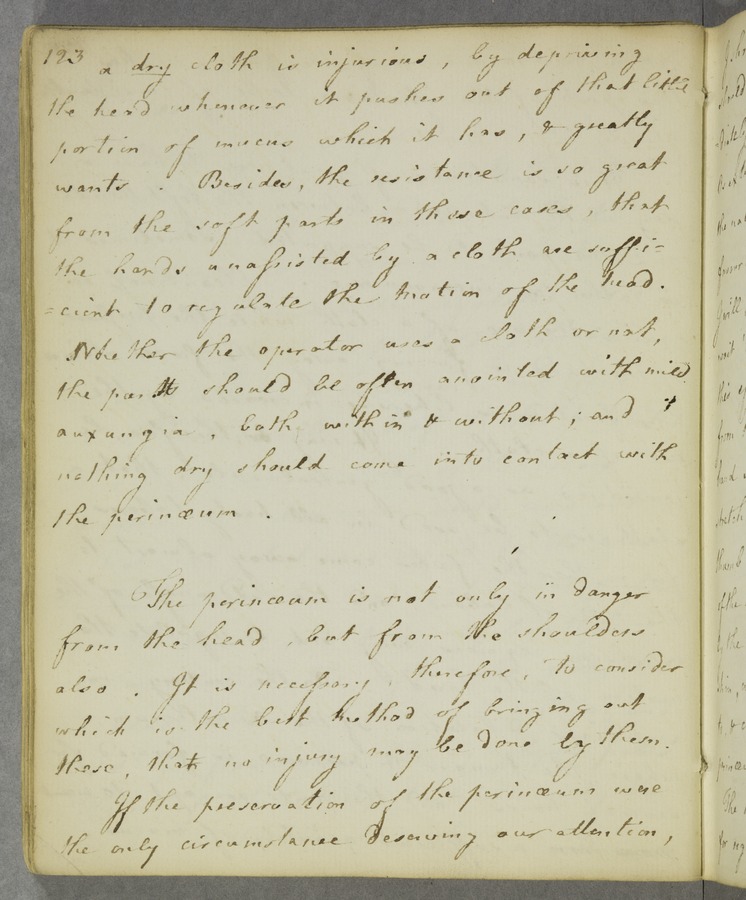 123 a dry cloth is injurious, by depriving
the head whenever it pushes out of that little
portion of mucus which it has, & greatly
wants. Besides, the resistance is so great
from the soft parts in these cases, that
the hands unassisted by a cloth are suffi=
=cient to regulate the motion of the head.
Whether the operator uses a cloth or not,
the parts should be often anointed with mild
auxungia, both within & without; and
nothing dry should come into contact with
the perinæum.
The perinæum is not only in danger
from the head, but from the shoulders
also. It is necessary, therefore, to consider
which is the best method of bringing out
these, that no injury may be done by them.
If the preservation of the perinæum were
the only circumstance deserving our attention,